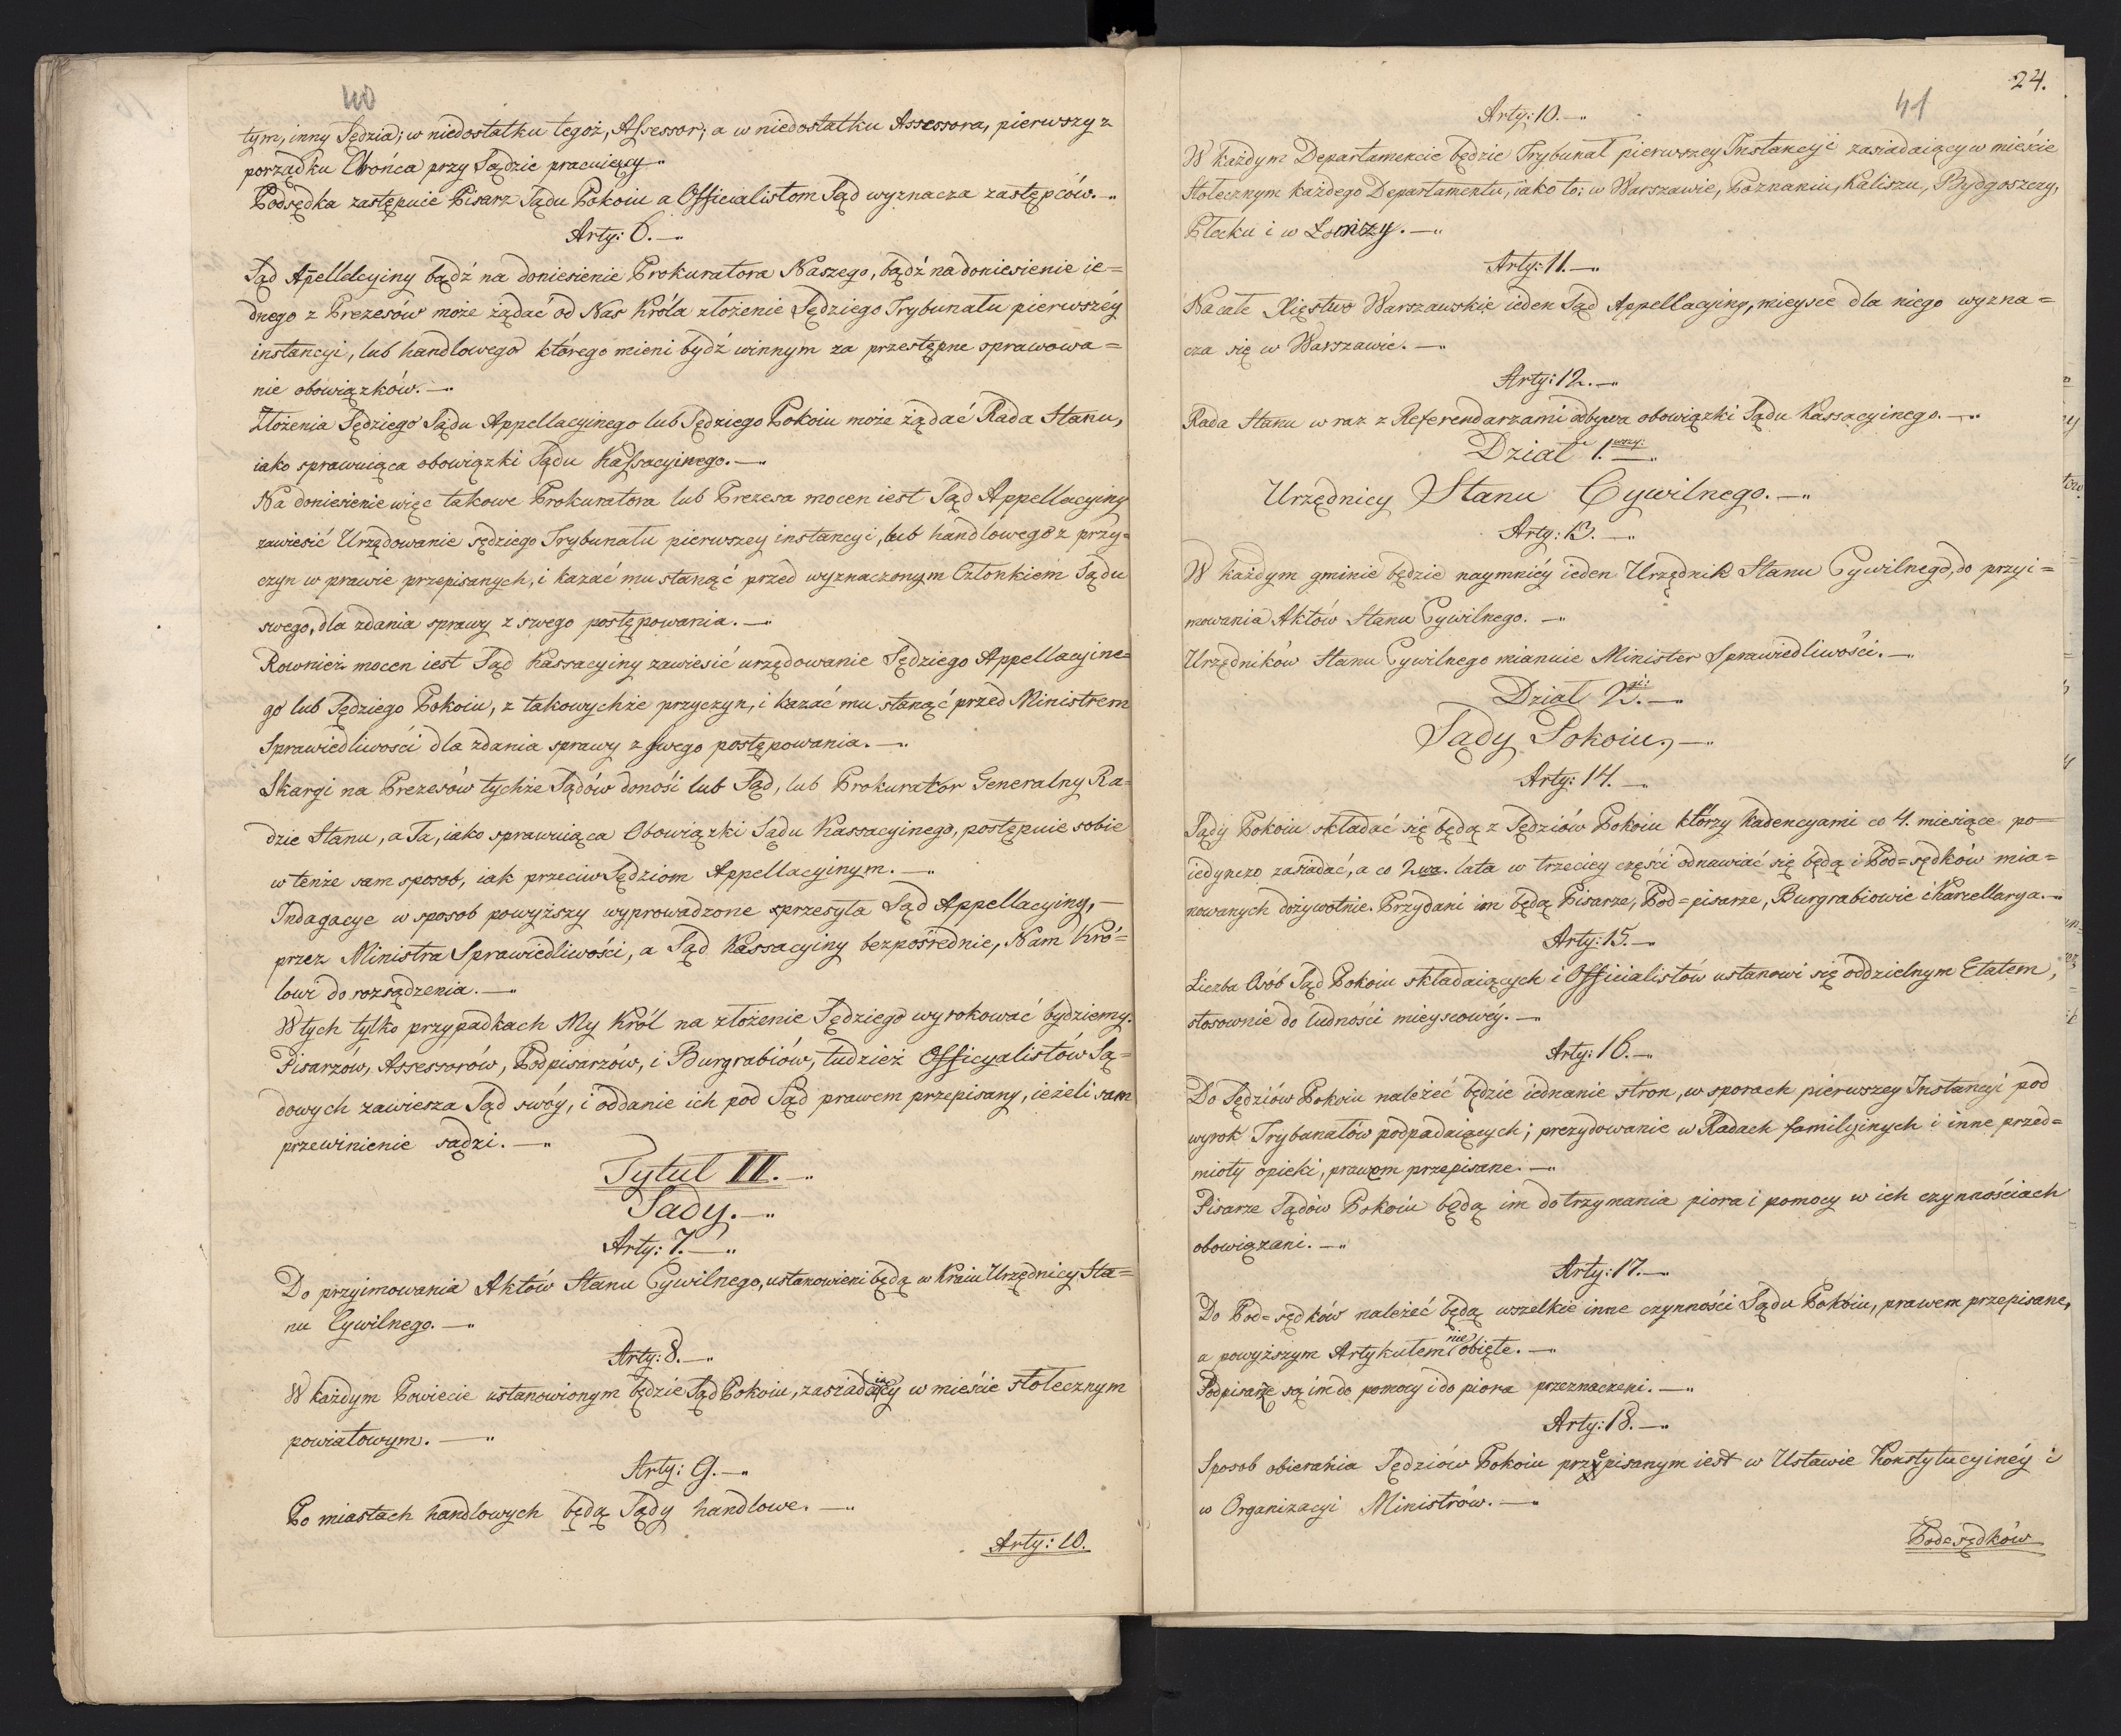 40
tym, inny Sędzia; w niedostatku tegoż, Assessor; a w niedostatku Assessora, pierwszy z
porządku Obrońca przy Sądzie pracuiący.
Podsędka zastępuie Pisarz Sądu Pokoiu a Officialistom Sąd wyznacza zastępców. —
Arty: 6. —
Sąd Apellacyiny bądź na doniesienie Prokuratora Naszego, bądź na doniesienie ie=
dnego z Prezesów może żądać od Nas Króla złożenie Sędziego Trybunału pierwszéy
instancyi, lub handlowego którego mieni bydź winnym za przestępne sprawowa=
nie obowiązków. —
Złożenia Sędziego Sądu Appellacyinego lub Sędziego Pokoiu może żądać Rada Stanu,
iako sprawuiąca obowiązki Sądu Kassacyinego. —
Na doniesienie więc takowe Prokuratora lub Prezesa mocen iest Sąd Appellacyiny
zawiesić Urzędowanie sędziego Trybunału pierwszey instancyi, lub handlowego z przy=
czyn w prawie przepisanych, i kazać mu stanąć przed wyznaczonym Członkiem Sądu
swego, dla zdania sprawy z swego postępowania. —
Rownież mocen iest Sąd Kassacyiny zawiesić urzędowanie Sędziego Appellacyine=
go lub Sędziego Pokoiu, z takowychże przyczyn, i kazać mu stanąć przed Ministrem
Sprawiedliwości dla zdania sprawy z swego postępowania. —
Skargi na Prezesów tychże Sądów donośi lub Sąd, lub Prokurator Generalny Ra=
dzie Stanu, a Ta, iako sprawuiąca Obowiązki Sądu Kassacyinego, postępuie sobie
w tenże sam sposob, iak przeciw Sędziom Appellacyinym. —
Indagacye w sposob powyższy wyprowadzone przesyła Sąd Appellacyiny, —
przez Ministra Sprawiedliwości, a Sąd Kassacyiny bezpośrednie, Nam Kró=
lowi do rozsądzenia. —
W tych tylko przypadkach My Król na złożenie Sędziego wyrokować bydziemy.
Pisarzów, Assessorów, Podpisarzów, i Burgrabiów, tudzież Officyalistów Są=
dowych zawiesza Sąd swóy, i oddanie ich pod Sąd prawem przepisany, ieżeli sam
przewinienie sądzi. —
Tytuł II. —
Sądy. —
Arty: 7. —
Do przyimowania Aktów Stanu Cywilnego, ustanowieni będą w Kraiu Urzędnicy Sta=
nu Cywilnego. —
Arty: 8. —
W każdym Powiecie ustanowionym będzie Sąd Pokoiu, zasiadaiący w mieście stołecznym
powiatowym. —
Arty: 9. —
Po miastach handlowych będą Sądy handlowe. —
Arty: 10.
24.
41
Arty: 10. —
W każdym Departamencie będzie Trybunał pierwszey Instancyi zasiadaiący w mieście
Stołecznym każdego Departamentu, iako to: w Warszawie, Poznaniu, Kaliszu, Bydgoszczy,
Płocku i w Łomży. —
Arty: 11. —
Na całe Xięstwo Warszawskie ieden Sąd Appellacyiny, mieysce dla niego wyzna=
cza się w Warszawie. —
Arty: 12. —
Rada Stanu w raz z Referendarzami odbywa obowiązki Sądu Kassacyinego. —
Dział 1.wszy:
Urzędnicy Stanu Cywilnego. —
Arty: 13. —
W każdym gminie będzie naymniéy ieden Urzędnik Stanu Cywilnego, do przyi=
mowania Aktów Stanu Cywilnego. —
Urzędników Stanu Cywilnego mianuie Minister Sprawiedliwości. —
Dział 2.gi: —
Sądy Pokoiu, —
Arty: 14. —
Sądy Pokoiu składać się będą z Sędziów Pokoiu którzy kadencyami co 4. miesiące po=
iedynczo zasiadać, a co 2wa. lata w trzeciey części odnawiać się będą i Pod=sędków mia=
nowanych dożywotnie. Przydani im będą Pisarze, Pod=pisarze, Burgrabiowie i Kancellarya. —
Arty: 15. —
Liczba Osób Sąd Pokoiu składaiących i Officialistów ustanowi się oddzielnym Etatem,
stosownie do ludności mieyscowéy. —
Arty: 16. —
Do Sędziów Pokoiu należeć będzie iednanie stron, w sporach pierwszey Instancyi pod
wyrok Trybunałów podpadaiących; prezydowanie w Radach familyinych i inne przed=
mioty opieki, prawem przepisane. —
Pisarze Sądów Pokoiu będą im do trzymania piora i pomocy w ich czynnościach
obowiązani. —
Arty: 17. —
Do Pod=sędków należeć będą wszelkie inne czynności Sądu Pokoiu, prawem przepisane,
a powyższym Artykułem nie obięte. —
Podpisarze są im do pomocy i do piora przeznaczeni. —
Arty: 18. —
Sposob obierania Sędziów Pokoiu przepisanym iest w Ustawie Konstytucyinéy i
w Organizacyi Ministrów. —
Pod=sędków